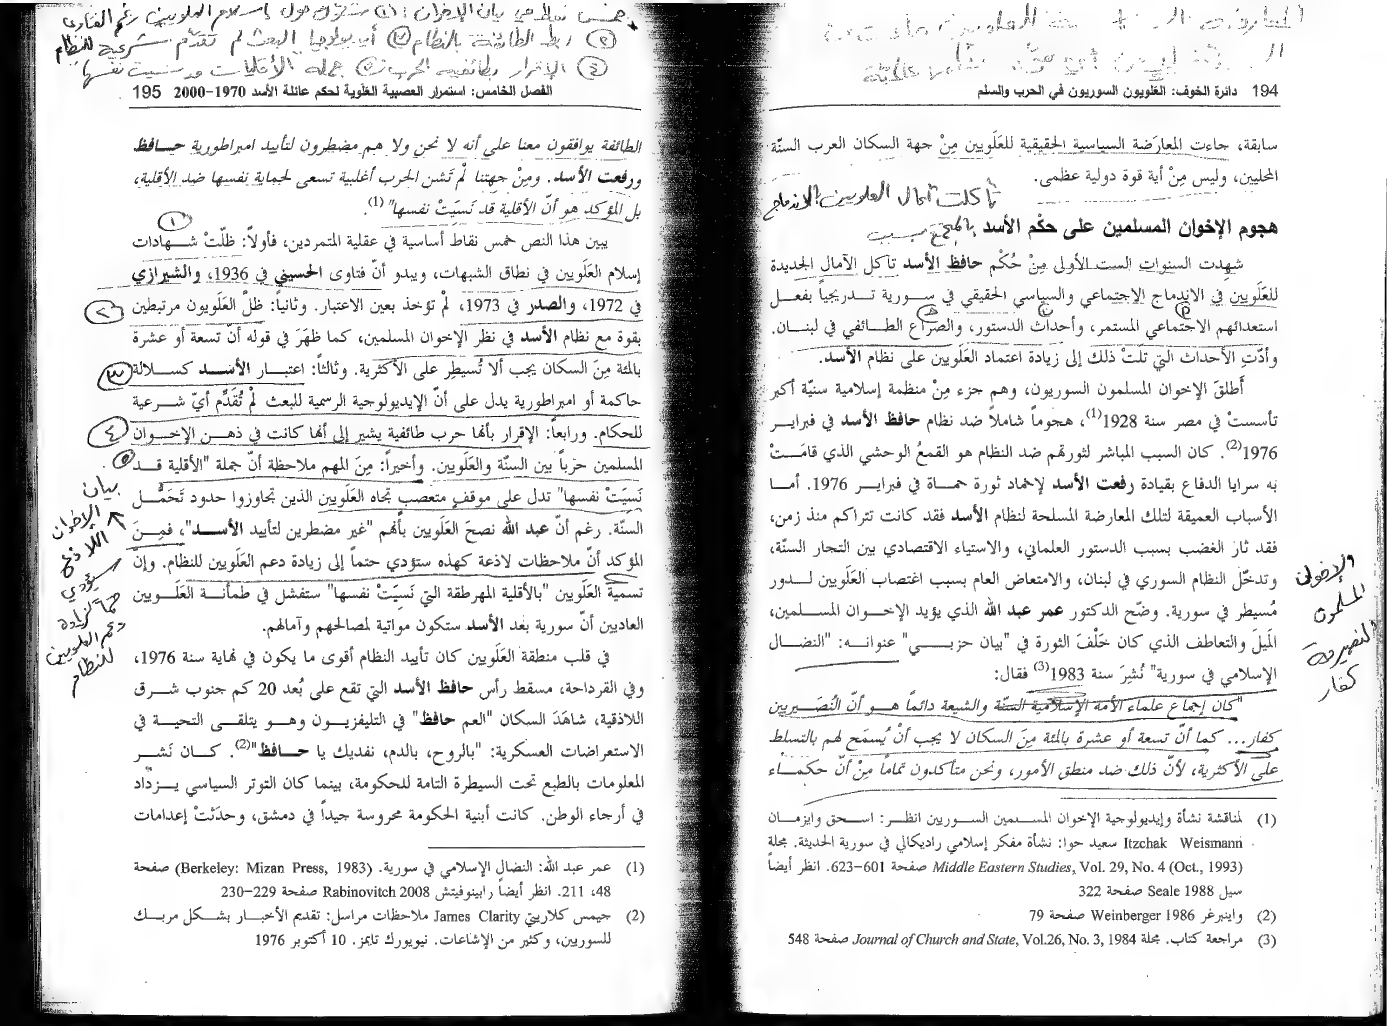 194 دائرة الخوف: العَلَويون السوريون في الحرب والسلم
سابقة، جاءت المعارَضة السياسية الحقيقية للعَلَويين مِنْ جهة السكان العرب السنّة
المحليين، وليس مِنْ أية قوة دولية عظمى.
تآكلت آمال العلويين بالاندماج
هجوم الإخوان المسلمين على حكْم الأسد
بالمجتمع بسبب
شهِدت السنوات الست الأولى مِنْ حُكْم حافظ الأسد تآكل الآمال الجديدة
للعَلَويين في الاندماج الاجتماعي والسياسي الحقيقي في سورية تدريجياً بفعل
استعدائهم الاجتماعي المستمر، وأحداث الدستور، والصراع الطائفي في لبنان.
وأدّتِ الأحداث التي تلَتْ ذلك إلى زيادة اعتماد العَلَويين على نظام الأسد.
أَطلقَ الإخوان المسلمون السوريون، وهم جزء مِنْ منظمة إسلامية سنيّة أكبر
تأسستْ في مصر سنة 1928(1)، هجوماً شاملاً ضد نظام حافظ الأسد في فبراير
1976(2). كان السبب المباشر لثورتهم ضد النظام هو القمعُ الوحشي الذي قامَتْ
به سرايا الدفاع بقيادة رفعت الأسد لإخماد ثورة حماة في فبراير 1976. أما
الأسباب العميقة لتلك المعارضة المسلحة لنظام الأسد فقد كانت تتراكم منذ زمن،
فقد ثار الغضب بسبب الدستور العلماني، والاستياء الاقتصادي بين التجار السنّة،
وتدخّل النظام السوري في لبنان، والامتعاض العام بسبب اغتصاب العَلَويين لدور
مُسيطر في سورية. وضّح الدكتور عمر عبد الله الذي يؤيد الإخوان المسلمين،
المَيلَ والتعاطف الذي كان خَلْفَ الثورة في "بيان حزبي" عنوانه: "النضال
الإسلامي في سورية" نُشِرَ سنة 1983(3) فقال:
"كان إجماع علماء الأمة الإسلامية السنّة والشيعة دائماً هو أنّ النُصَيريين
كفار... كما أنّ تسعة أو عشرة بالمئة مِنَ السكان لا يجب أنْ يُسمَح لهم بالتسلط
على الأكثرية، لأنّ ذلك ضد منطق الأمور، ونحن متأكدون تماماً مِنْ أنّ حكماء
والإخوان
المسلمون
النصيرية
كفار
(1) لمناقشة نشأة وإيديولوجية الإخوان المسلمين السوريين انظر: اسحق وايزمان
Itzchak Weismann سعيد حوا: نشأة مفكر إسلامي راديكالي في سورية الحديثة. مجلة
Middle Eastern Studies, Vol. 29, No. 4 (Oct., 1993) صفحة 601–623. انظر أيضاً
سيل Seale 1988 صفحة 322
(2) واينبرغر Weinberger 1986 صفحة 79
(3) مراجعة كتاب. مجلة Journal of Church and State, Vol.26, No. 3, 1984 صفحة 548
خمس نقاط في بيان الإخوان: (1) حول إسلام العلويين رغم الفتاوى
(2) ربط الطائفة بالنظام (3) أيديولوجيا البعث لم تقدّم شرعية للنظام
(4) الإقرار بطائفية الحرب (5) جملة الأقليات قد نسيت نفسها
الفصل الخامس: استمرار العصبية العَلَوية لحكم عائلة الأسد 1970–2000 195
الطائفة يوافقون معنا على أنه لا نحن ولا هم مضطرون لتأييد امبراطورية حافظ
ورفعت الأسد. ومِنْ جهتنا لمْ تَشن الحرب أغلبية تسعى لحماية نفسها ضد الأقلية،
بل المؤكد هو أنّ الأقلية قد نَسِيَتْ نفسها"(1).
يبين هذا النص خمس نقاط أساسية في عقلية المتمردين، فأولاً: ظلّتْ شهادات
إسلام العَلَويين في نطاق الشبهات، ويبدو أنّ فتاوى الحسيني في 1936، والشيرازي
في 1972، والصدر في 1973، لمْ تؤخذ بعين الاعتبار. وثانياً: ظلّ العَلَويون مرتبطين
بقوة مع نظام الأسد في نظر الإخوان المسلمين، كما ظهَرَ في قوله أنّ تسعة أو عشرة
بالمئة مِنَ السكان يجب ألا تُسيطِر على الأكثرية. وثالثاً: اعتبار الأسد كسلالة
حاكمة أو امبراطورية يدل على أنّ الإيديولوجية الرسمية للبعث لمْ تُقَدِّم أيّ شرعية
للحكام. ورابعاً: الإقرار بأنها حرب طائفية يشير إلى أنها كانت في ذهن الإخوان
المسلمين حرْباً بين السنّة والعَلَويين. وأخيراً: مِنَ المهم ملاحظة أنّ جملة "الأقلية قد
نَسِيَتْ نفسها" تدل على موقف متعصب تجاه العَلَويين الذين تجاوزوا حدود تَحَمُّل
السنّة. رغم أنّ عبد الله نصحَ العَلَويين بأنهم "غير مضطرين لتأييد الأسد"، فمِنَ
المؤكد أنّ ملاحظات لاذعة كهذه ستؤدي حتماً إلى زيادة دعم العَلَويين للنظام. وإنّ
تسمية العَلَويين "بالأقلية المهرطقة التي نَسِيَتْ نفسها" ستفشل في طمأنة العَلَويين
العاديين أنّ سورية بعد الأسد ستكون مواتية لمصالحهم وآمالهم.
في قلب منطقة العَلَويين كان تأييد النظام أقوى ما يكون في نهاية سنة 1976،
وفي القرداحة، مسقط رأس حافظ الأسد التي تقع على بُعد 20 كم جنوب شرق
اللاذقية، شاهَدَ السكان "العم حافظ" في التليفزيون وهو يتلقى التحية في
الاستعراضات العسكرية: "بالروح، بالدم، نفديك يا حافظ"(2). كان نَشر
المعلومات بالطبع تحت السيطرة التامة للحكومة، بينما كان التوتر السياسي يزداد
في أرجاء الوطن. كانت أبنية الحكومة محروسة جيداً في دمشق، وحدَثتْ إعدامات
بيان
الإخوان
اللاذع
سيؤدي
حتماً لزيادة
دعم العلويين
للنظام
(1) عمر عبد الله: النضال الإسلامي في سورية. (Berkeley: Mizan Press, 1983) صفحة
48، 211. انظر أيضاً رابينوفيتش Rabinovitch 2008 صفحة 229–230
(2) جيمس كلاريتي James Clarity ملاحظات مراسل: تقديم الأخبار بشكل مربك
للسوريين، وكثير من الإشاعات. نيويورك تايمز. 10 أكتوبر 1976